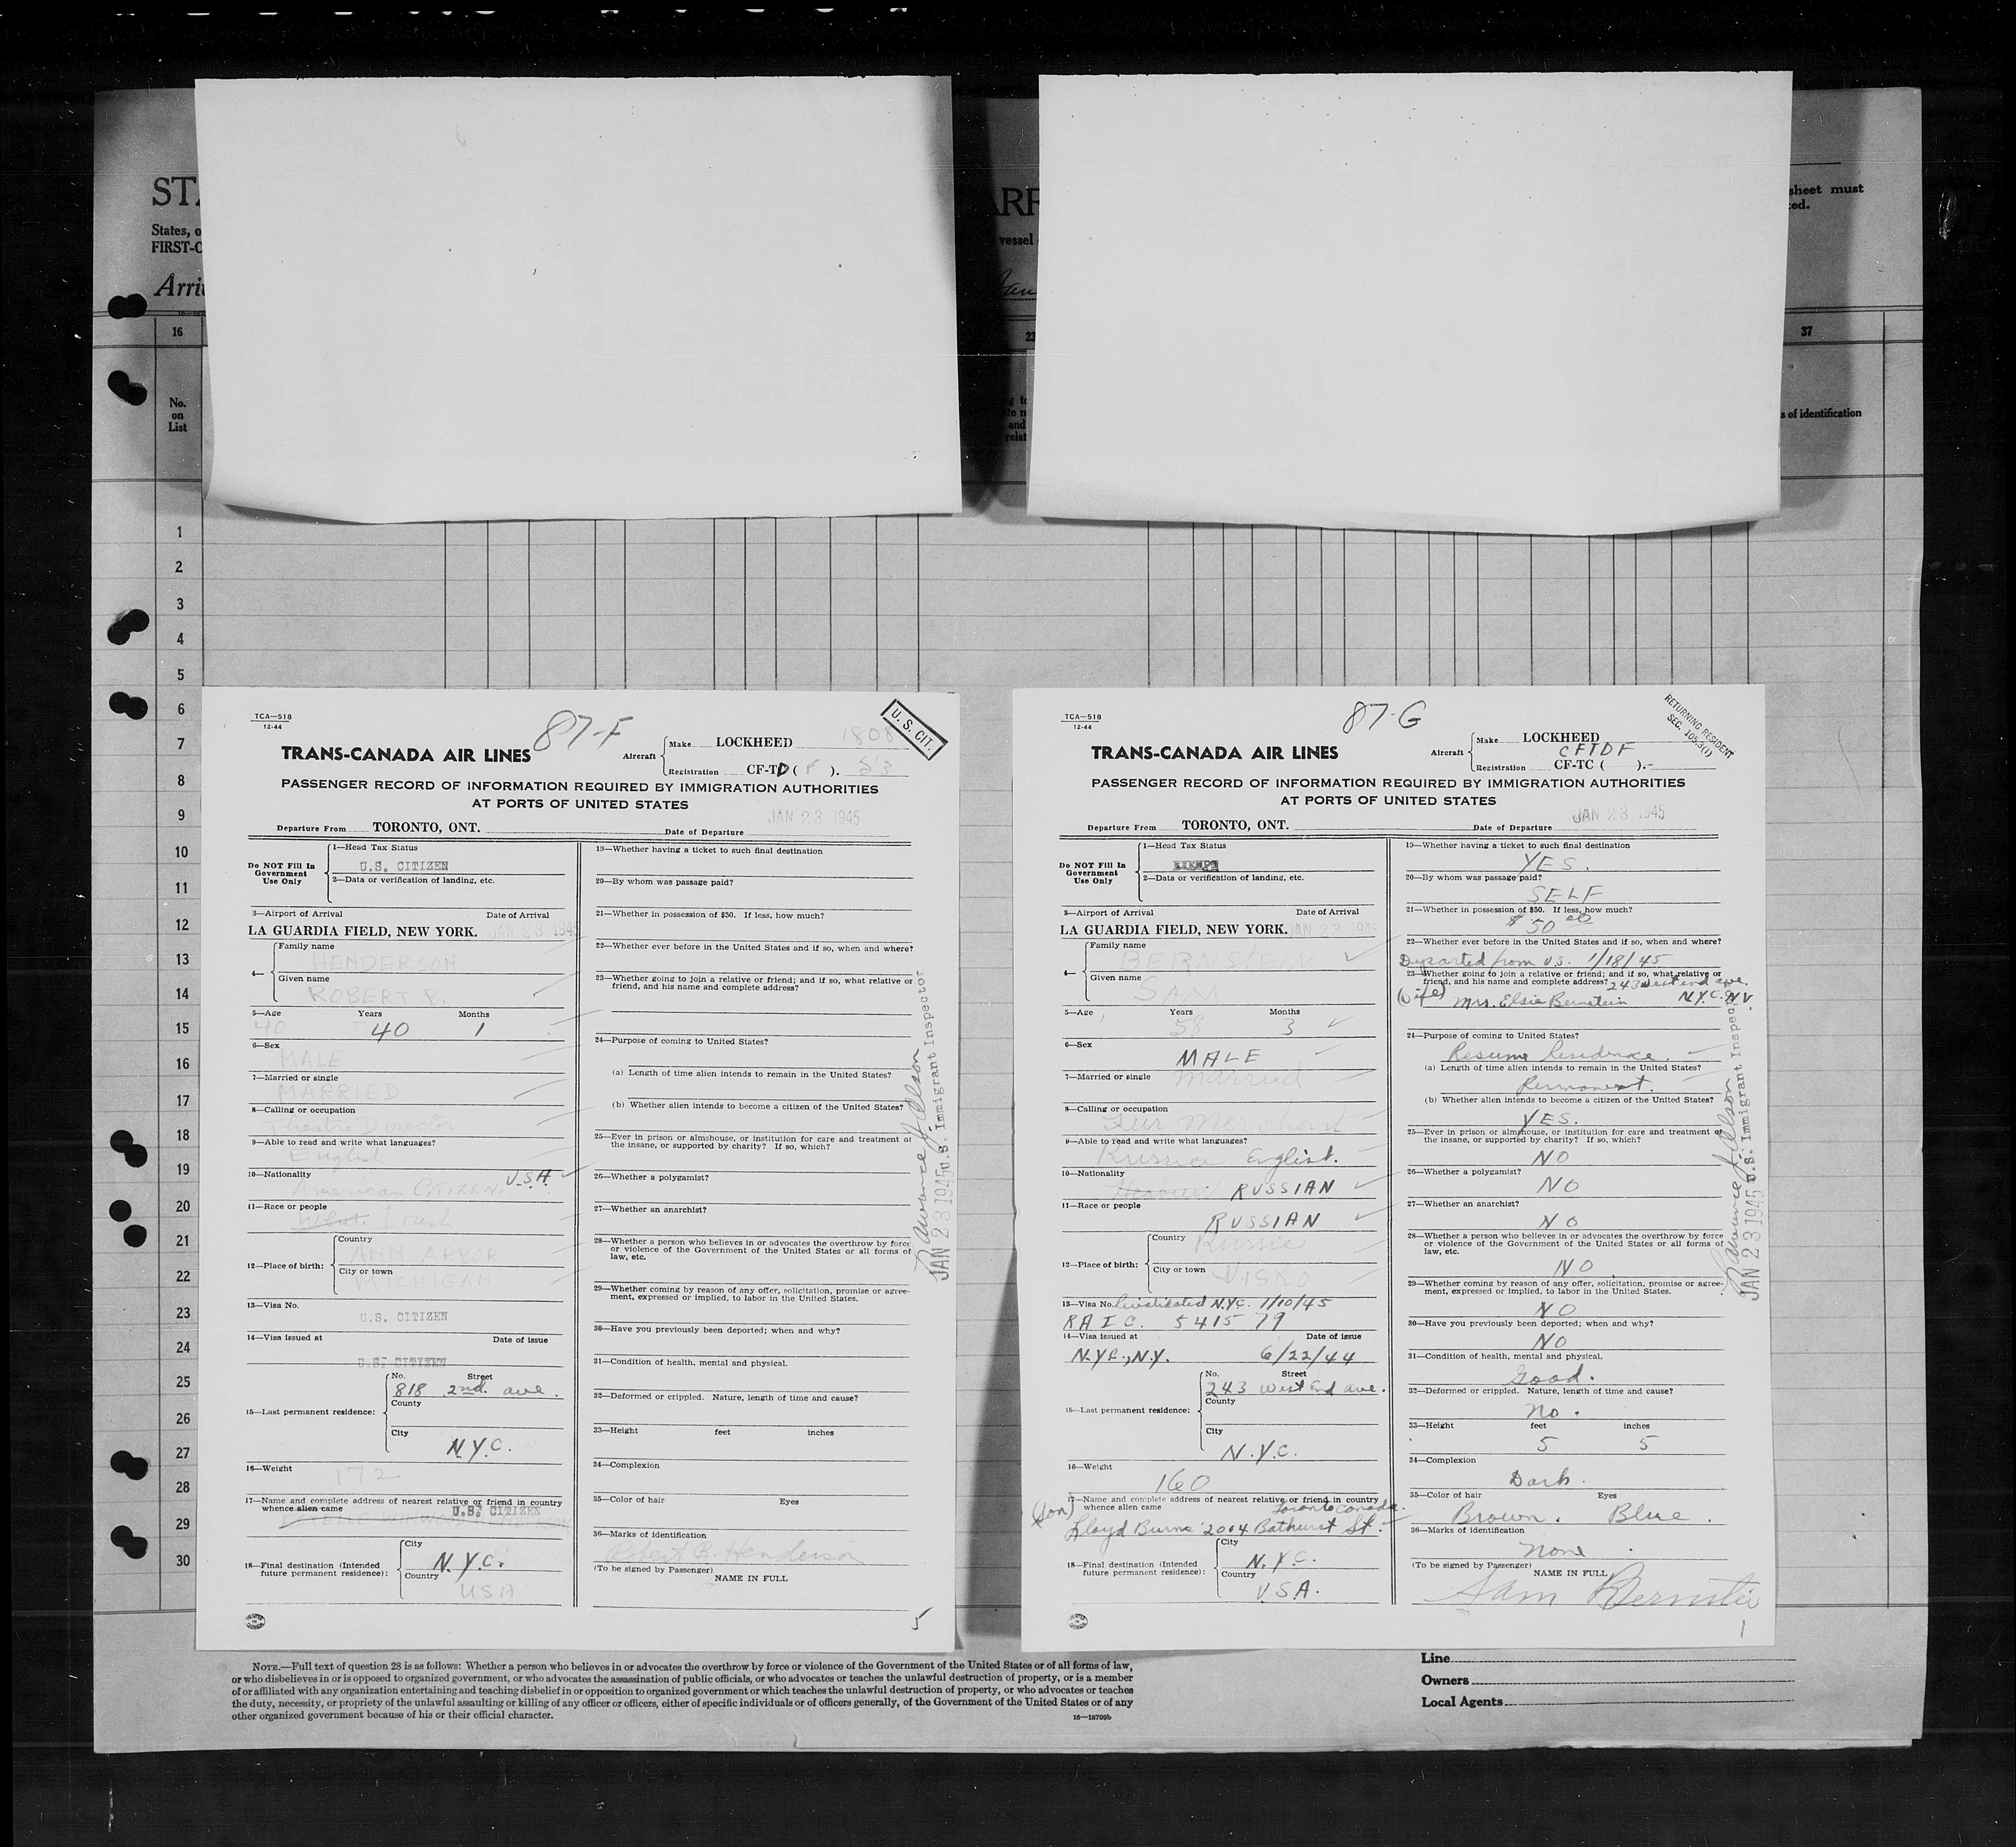 STA
States, o
FIRST-C
Arri
ARR
vessel
sheet must
ed.
16
37
No.
on
List
and
relat
s of identification
1
2
3
4
5
6
7
8
9
10
11
12
13
14
15
16
17
18
19
20
21
22
23
24
25
26
27
28
29
30
TCA—518
12-44
87-F
U. S. CIT.
TRANS-CANADA AIR LINES
Aircraft
Make LOCKHEED
Registration CF-TD ( F ).
PASSENGER RECORD OF INFORMATION REQUIRED BY IMMIGRATION AUTHORITIES
AT PORTS OF UNITED STATES
Departure From TORONTO, ONT. Date of Departure JAN 23 1945
Do NOT Fill In
Government
Use Only
1—Head Tax Status
U.S. CITIZEN
2—Data or verification of landing, etc.
3—Airport of Arrival Date of Arrival
LA GUARDIA FIELD, NEW YORK. JAN 23 1945
4—
Family name
HENDERSON
Given name
ROBERT B.
5—Age Years Months
40 40 1
6—Sex
MALE
7—Married or single
MARRIED
8—Calling or occupation
Theatre Director
9—Able to read and write what languages?
English
10—Nationality U.S.A.
American CITIZEN
11—Race or people
White Irish
12—Place of birth:
Country
ANN ARBOR
City or town
MICHIGAN
13—Visa No.
U.S. CITIZEN
14—Visa issued at Date of issue
U.S. CITIZEN
15—Last permanent residence:
No. Street
818 2nd. ave.
County
City
N.Y.C.
16—Weight
172
17—Name and complete address of nearest relative or friend in country
whence alien came U.S. CITIZEN
18—Final destination (Intended
future permanent residence):
City
N.Y.C.
Country
USA
19—Whether having a ticket to such final destination
20—By whom was passage paid?
21—Whether in possession of $50. If less, how much?
22—Whether ever before in the United States and if so, when and where?
23—Whether going to join a relative or friend; and if so, what relative or
friend, and his name and complete address?
24—Purpose of coming to United States?
(a) Length of time alien intends to remain in the United States?
(b) Whether alien intends to become a citizen of the United States?
25—Ever in prison or almshouse, or institution for care and treatment of
the insane, or supported by charity? If so, which?
26—Whether a polygamist?
27—Whether an anarchist?
28—Whether a person who believes in or advocates the overthrow by force
or violence of the Government of the United States or all forms of
law, etc.
29—Whether coming by reason of any offer, solicitation, promise or agree-
ment, expressed or implied, to labor in the United States.
30—Have you previously been deported; when and why?
31—Condition of health, mental and physical.
32—Deformed or crippled. Nature, length of time and cause?
33—Height feet inches
34—Complexion
35—Color of hair Eyes
36—Marks of identification
Robert B. Henderson
(To be signed by Passenger) NAME IN FULL
JAN 23 1945 U.S. Immigrant Inspector
5
TCA—518
12-44
87-G
RETURNING RESIDENT
SEC. 105.3(1)
TRANS-CANADA AIR LINES
Aircraft
Make LOCKHEED
CFTDF
Registration CF-TC ( ).-
PASSENGER RECORD OF INFORMATION REQUIRED BY IMMIGRATION AUTHORITIES
AT PORTS OF UNITED STATES
Departure From TORONTO, ONT. Date of Departure JAN 23 1945
Do NOT Fill In
Government
Use Only
1—Head Tax Status
EXEMPT
2—Data or verification of landing, etc.
3—Airport of Arrival Date of Arrival
LA GUARDIA FIELD, NEW YORK. JAN 23 1945
4—
Family name
BERNSTEIN
Given name
SAM
5—Age Years Months
58 3
6—Sex
MALE
7—Married or single married
8—Calling or occupation
Fur Merchant
9—Able to read and write what languages?
Russia English.
10—Nationality
Hebrew RUSSIAN
11—Race or people
RUSSIAN
12—Place of birth:
Country Russia
City or town
VISKO
13—Visa No. Revalidated N.Y.C. 1/10/45
RAIC. 541579
14—Visa issued at Date of issue
N.Y.C., N.Y. 6/22/44
15—Last permanent residence:
No. Street
243 West End ave.
County
City
N.Y.C.
16—Weight
160
17—Name and complete address of nearest relative or friend in country
whence alien came Toronto Canada.
(Son) Lloyd Burns 2004 Bathurst St.
18—Final destination (Intended
future permanent residence):
City
N.Y.C.
Country
USA.
19—Whether having a ticket to such final destination
YES.
20—By whom was passage paid?
SELF
21—Whether in possession of $50. If less, how much?
$50 00
22—Whether ever before in the United States and if so, when and where?
Departed from U.S. 1/18/45
23—Whether going to join a relative or friend; and if so, what relative or
friend, and his name and complete address? 243 West end ave.
(wife) Mrs. Elsie Bernstein N.Y.C. N.Y.
24—Purpose of coming to United States?
Resume Residence.
(a) Length of time alien intends to remain in the United States?
Permanent.
(b) Whether alien intends to become a citizen of the United States?
YES.
25—Ever in prison or almshouse, or institution for care and treatment of
the insane, or supported by charity? If so, which?
NO
26—Whether a polygamist?
NO
27—Whether an anarchist?
NO
28—Whether a person who believes in or advocates the overthrow by force
or violence of the Government of the United States or all forms of
law, etc.
NO
29—Whether coming by reason of any offer, solicitation, promise or agree-
ment, expressed or implied, to labor in the United States.
NO
30—Have you previously been deported; when and why?
NO
31—Condition of health, mental and physical.
Good.
32—Deformed or crippled. Nature, length of time and cause?
No.
33—Height feet inches
5 5
34—Complexion
Dark.
35—Color of hair Eyes
Brown. Blue.
36—Marks of identification
none.
(To be signed by Passenger) NAME IN FULL
Sam Bernstein
JAN 23 1945 U.S. Immigrant Inspector
1
NOTE.—Full text of question 28 is as follows: Whether a person who believes in or advocates the overthrow by force or violence of the Government of the United States or of all forms of law,
or who disbelieves in or is opposed to organized government, or who advocates the assassination of public officials, or who advocates or teaches the unlawful destruction of property, or is a member
of or affiliated with any organization entertaining and teaching disbelief in or opposition to organized government or which teaches the unlawful destruction of property, or who advocates or teaches
the duty, necessity, or propriety of the unlawful assaulting or killing of any officer or officers, either of specific individuals or of officers generally, of the Government of the United States or of any
other organized government because of his or their official character.
16—18709b
Line
Owners
Local Agents